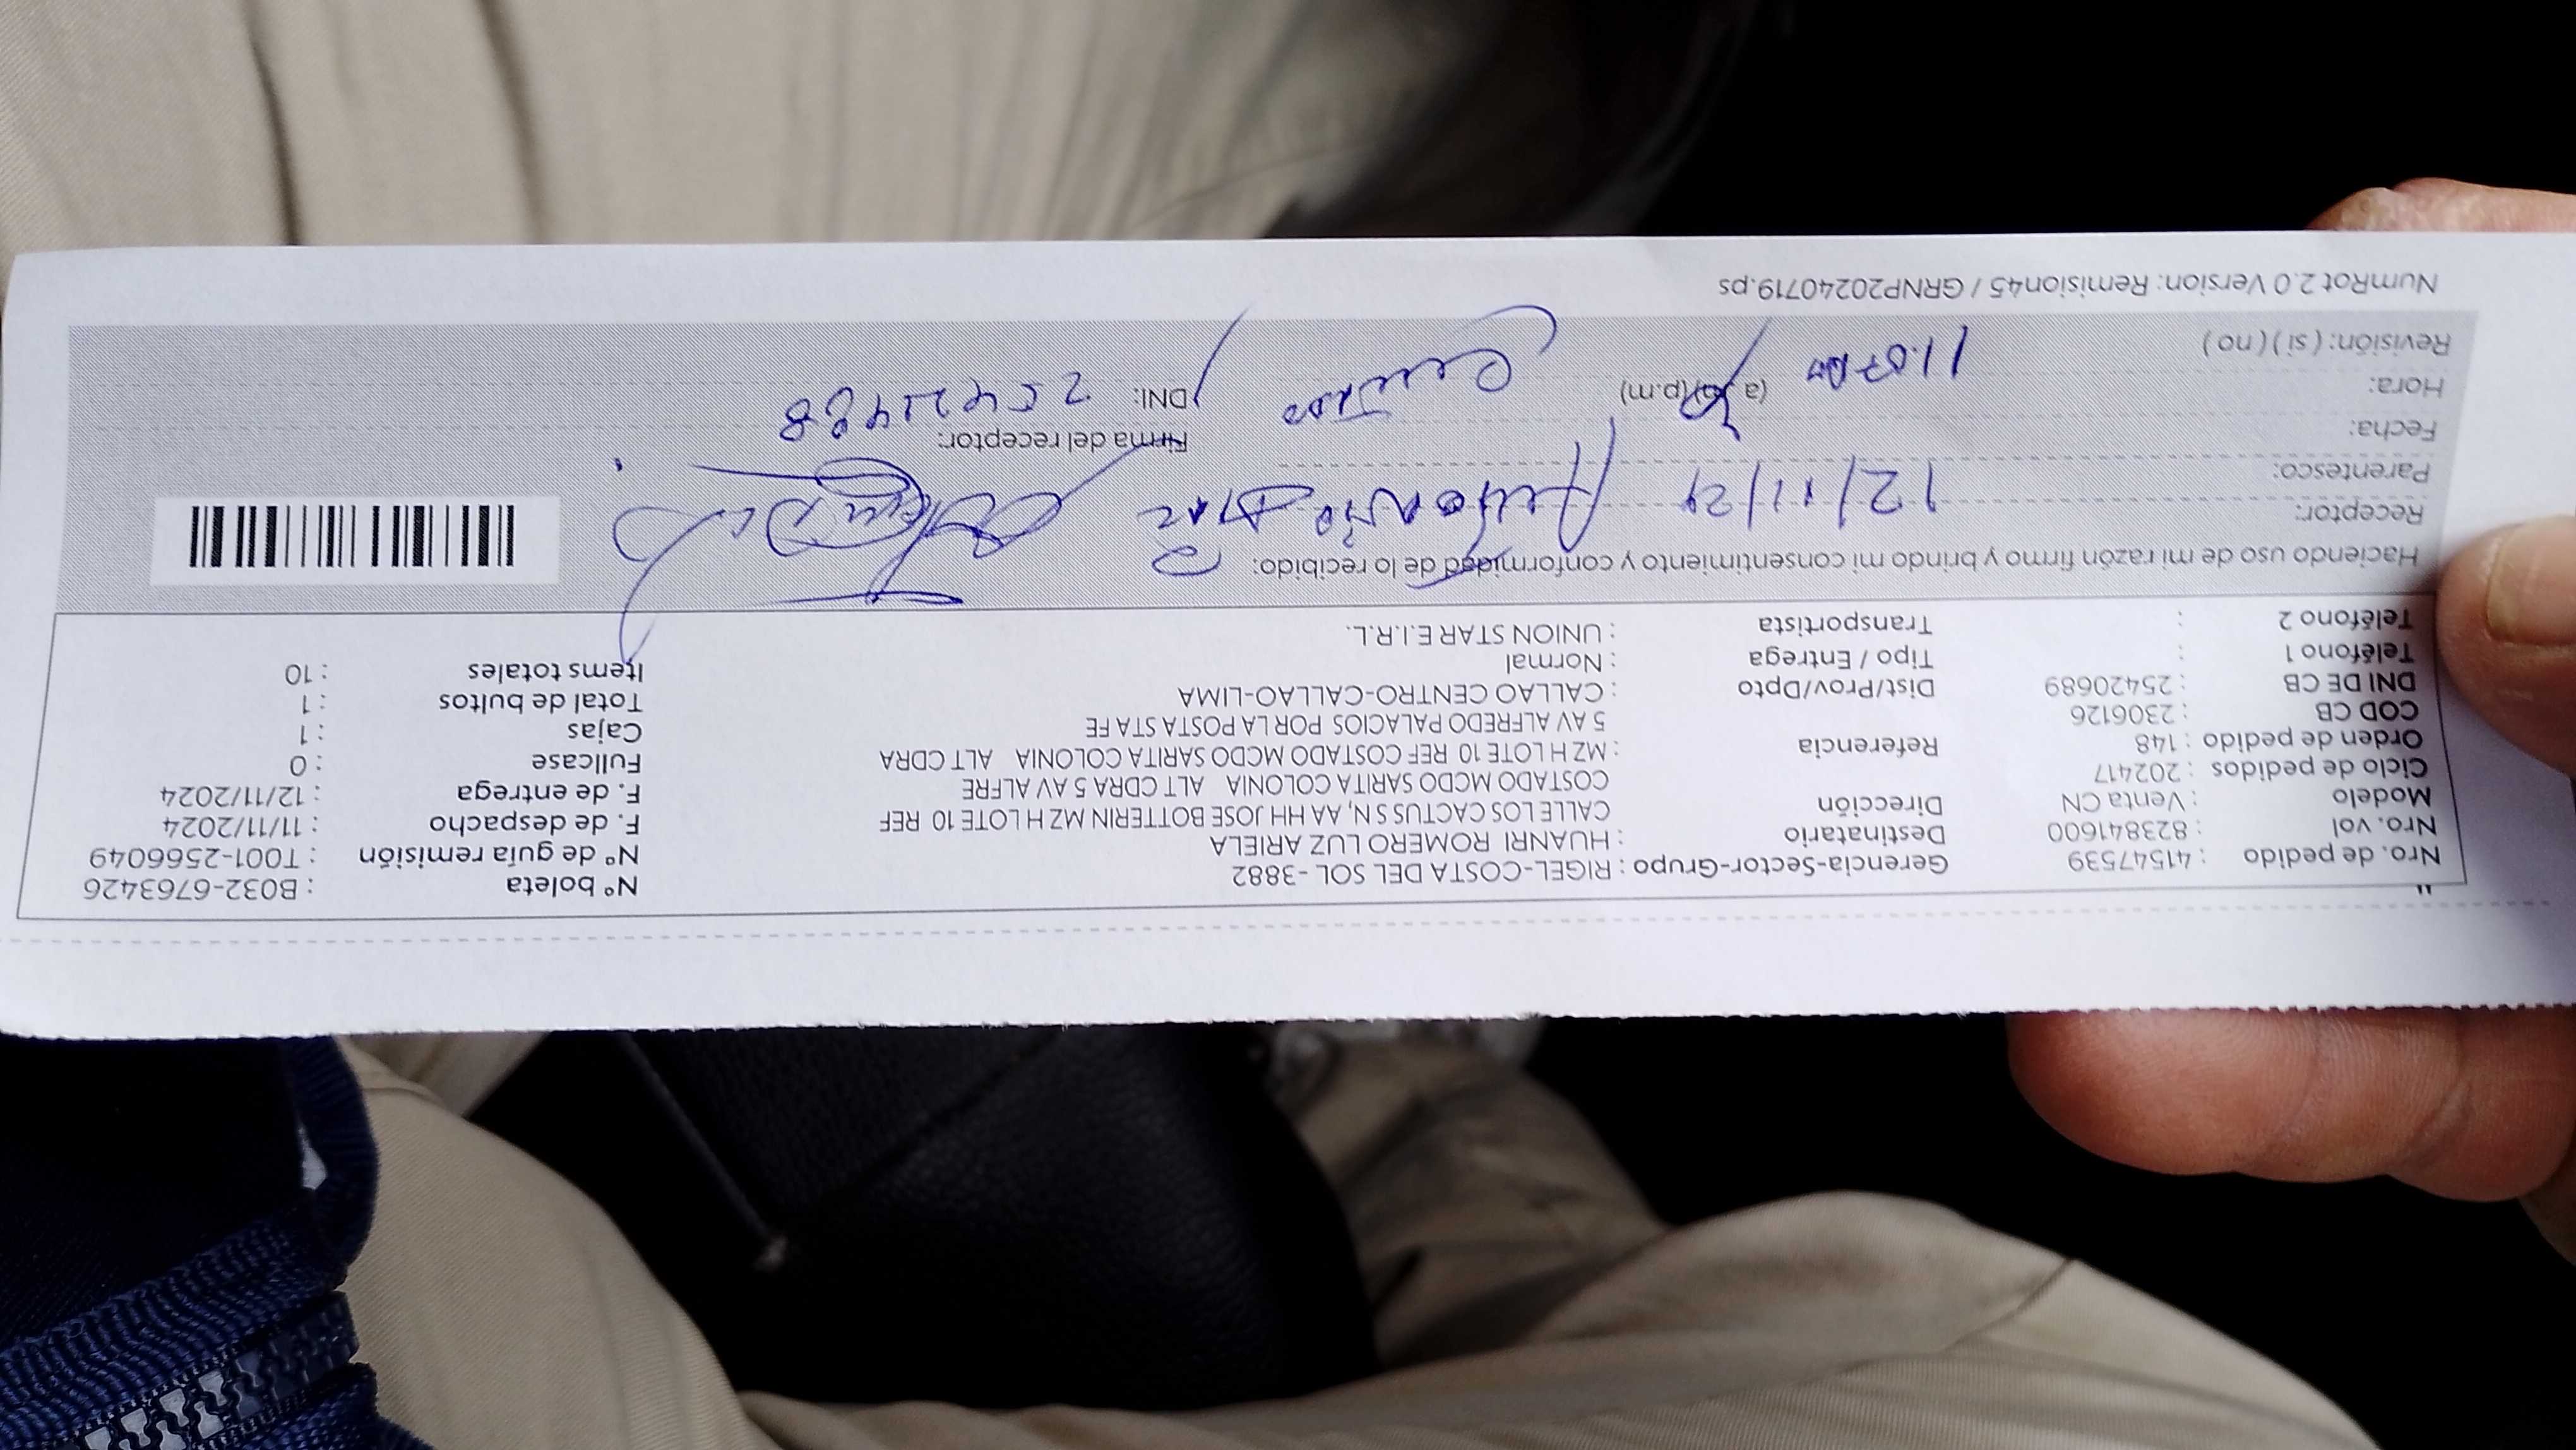 "
Nro. de pedido : 41547539 Gerencia-Sector-Grupo : RIGEL-COSTA DEL SOL -3882 N° boleta : B032-6763426
Nro. vol : 823841600 Destinatario : HUANRI ROMERO LUZ ARIELA N° de guía remisión : T001-2566049
Modelo : Venta CN Dirección CALLE LOS CACTUS S N, AA HH JOSE BOTTERIN MZ H LOTE 10 REF F. de despacho : 11/11/2024
Ciclo de pedidos : 202417 COSTADO MCDO SARITA COLONIA ALT CDRA 5 AV ALFRE F. de entrega : 12/11/2024
Orden de pedido : 148 Referencia : MZ H LOTE 10 REF COSTADO MCDO SARITA COLONIA ALT CDRA Fullcase : 0
COD CB : 2306126 5 AV ALFREDO PALACIOS POR LA POSTA STA FE Cajas : 1
DNI DE CB : 25420689 Dist/Prov/Dpto : CALLAO CENTRO-CALLAO-LIMA Total de bultos : 1
Teléfono 1 : Tipo / Entrega : Normal Items totales : 10
Teléfono 2 : Transportista : UNION STAR E.I.R.L.
Haciendo uso de mi razón firmo y brindo mi consentimiento y conformidad de lo recibido:
Receptor:
Parentesco:
Fecha: 12/11/24
Firma del receptor:
Hora: 11.07 (a.m) (p.m) DNI:
Revisión: ( si ) ( no )
NumRot 2.0 Version: Remision45 / GRNP20240719.ps